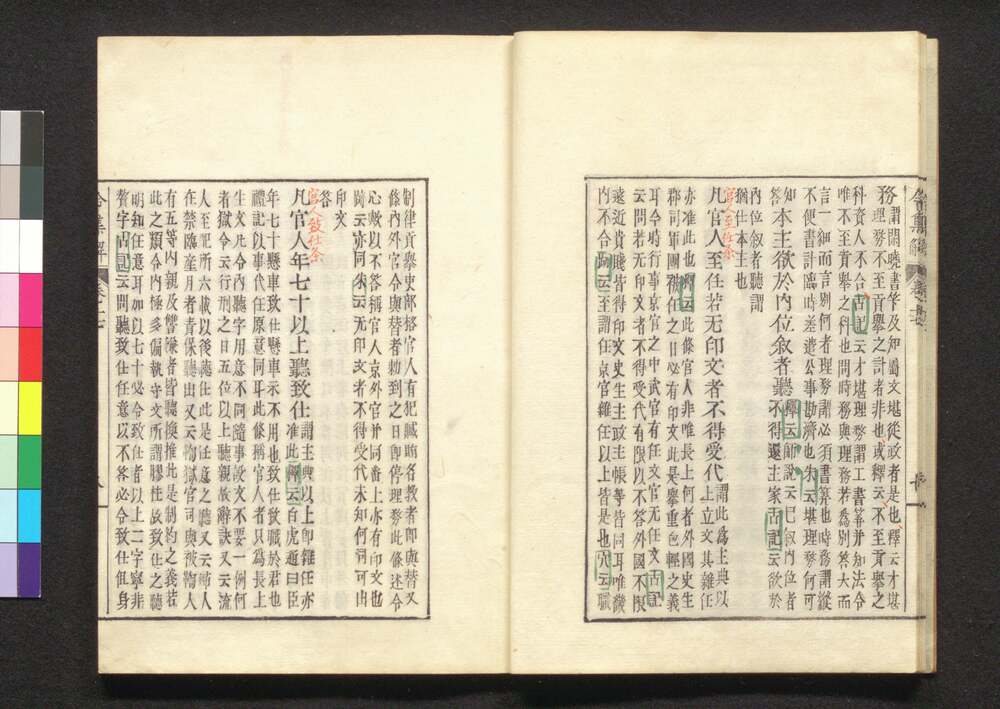 務謂閑曉書筭及知屬文堪從政者是也釋云才堪
理務不至貢擧之計者非也或釋云不至貢擧之
科資人不合古記云才堪理務謂工書筭并知法令
唯不至貢擧之科也問時務與理務若爲別答大而
言一細而言別何者理務謂必須書算也時務謂縱
不便書計臨時差遣公事勘濟也朱云堪理務何可
知本主欲於內位叙者聽釋云師說云已叙內位者
答不得還主家古記云欲於
內位叙者聽謂
猶仕本主也
官人至任条
凡官人至任若无印文者不得受代謂此爲主典以
上立文其雜任
亦准此也釋云此條官人非唯長上何者外國史生
郡司軍團雜任之日必有印文此是擧重包輕之義
耳令時行事京官之中武官有任文自餘无任文古記
云問若无印文者不得受代有限以不答外國不限
遠近貴賤皆得印文史生主政主帳等皆同耳唯職
內不合或云至謂任京官雜任以上皆是也穴云職
制律貢擧史部搭官人有犯贓賄名教者即與替又
條內外官令與替者勅到之日即停理務此條迷令
心歟以不答稱官人京外官并同番上亦有印文也
跡云亦同朱云无印文者不得受代未知何司可出
印文
答
官人致仕条
凡官人年七十以上聽致仕謂主典以上即雜任亦
准此釋云百虎通曰臣
年七十懸車致仕懸車示不用也致仕致職於君也
禮記以事代任原意同耳此條稱官人者只爲長上
生文凡令內聽字用意不同隨事設文不要一例何
者獄令云行刑之日五位以上聽親故辭訣又云流
人至配所六載以後聽仕此是任意之聽又云婦人
在禁臨産月者責保聽出又云物獄官司與被物人
有五等內親及讐嫌者皆聽換推此是制約之義若
此之類令內極多偏執守文所謂膠柱故致仕之聽
明知任意耳如以七十必令致仕者以上二字寧非
贅字古記云問聽致仕任意以不答必令致仕但身